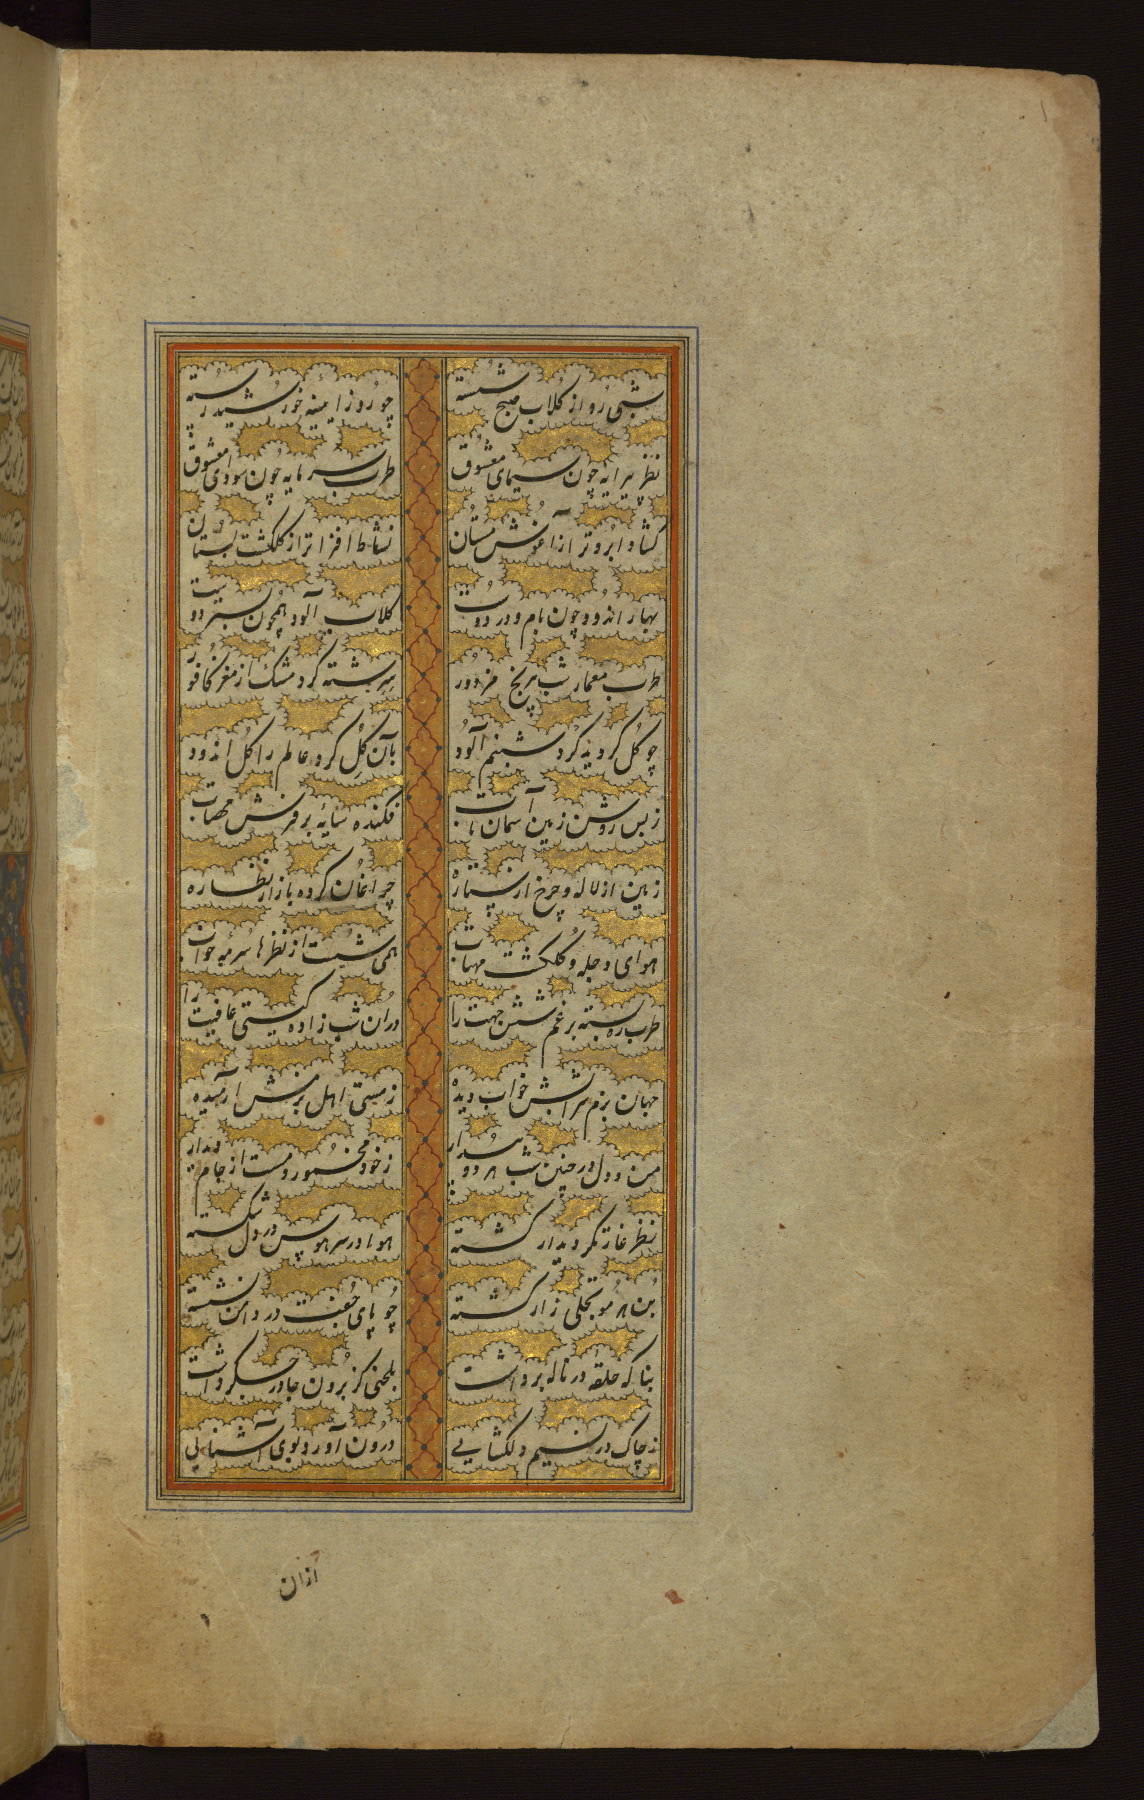 شبی رو از گلاب صبح شسته چو روز از اینه خورشید رسته
نظر پیرایه چون سیمای معشوق طرب سرمایه چون سودای معشوق
گشاد ابروتر از آغوش مستان نشاط افزاتر از گلگشت بستان
بهار اندود چون بام و در دوست گلاب آلود همچون بستر دوست
طرب معمار شب پر نخ مزدور سرشته کرد مشک از مغز کافور
چو گل گردید گرد شبنم آلود بآن گل کرد عالم را گل اندود
ز بس روشن زمین آسمان تاب فکنده سایه بر فرش مهتاب
زمین از لاله و چرخ از ستاره چراغان کرده بازار نظاره
هوای دجله و گلگشت مهتاب همی شست از نظرها سرمه خواب
طرب ره بسته بر غم شش جهت را در آن شب زاده گیتی عافیت را
جهان بزم سرابش خواب دیده ز مستی اهل بزمش آرمیده
من و دل در چنین شب هر دو بیدار ز خود مخمور و مست از جام دیدار
نظر غارتگر دیدار گشته هوا در سر هوس در دل شکسته
بن هر مو تجلی زار گشته چو پای خفت در دامن نشسته
بناگه حلقه در ناله برداشت بلحنی کز برون جا در جگر داشت
ز چاک در نسیم دلگشایی درون آورد بوی آشنایی
ازان